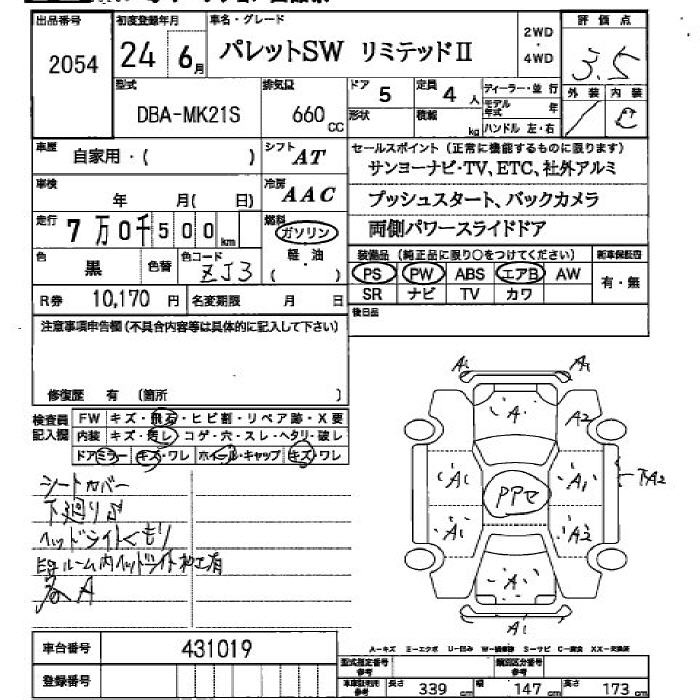 出品番号 初度登録年月 車名・グレード 2WD・4WD 評価点
2054 24 6月 パレットSW リミテッドⅡ 3.5
型式 排気量 ドア 定員 ディーラー・並行 外装 内装
DBA-MK21S 660CC 5 4人 モデル年式 年 C
形状 積載 kg ハンドル 左・右
車歴 自家用・( ) シフト AT セールスポイント (正常に機能するものに限ります)
サンヨーナビ・TV、ETC、社外アルミ
車検 年 月( 日) 冷房 AAC プッシュスタート、バックカメラ
走行 7万0千500km 燃料 ガソリン 両側パワースライドドア
色 黒 色替 色コード ZJ3 軽・油 ( )
装備品 (純正品に限り○をつけてください) 新車保証書
PS PW ABS エアB AW 有・無
R券 10,170円 名変期限 月 日 SR ナビ TV カワ
注意事項申告欄 (不具合内容等は具体的に記入して下さい) 後日品
修復歴 有 (箇所 )
検査員記入欄 FW キズ・飛石・ヒビ割・リペア跡・X要
内装 キズ・汚レ・コゲ・穴・スレ・ヘタリ・破レ
ドアミラー キズ・ワレ ホイール・キャップ キズ・ワレ
シートカバー
下廻りサ
ヘッドライトくもり
ルーム内ヘッドライト加工有
A
A1 A1
A A2
A1 PPセ A1 下A2
A1 A2
A
A1
車台番号 431019
A-キズ E-エクボ U-凹み W-補修跡 S-サビ C-腐食 XX-交換済
登録番号 型式指定番号 参考 類別区分番号 参考
車車証利用参考 長さ 339cm 幅 147cm 高さ 173cm